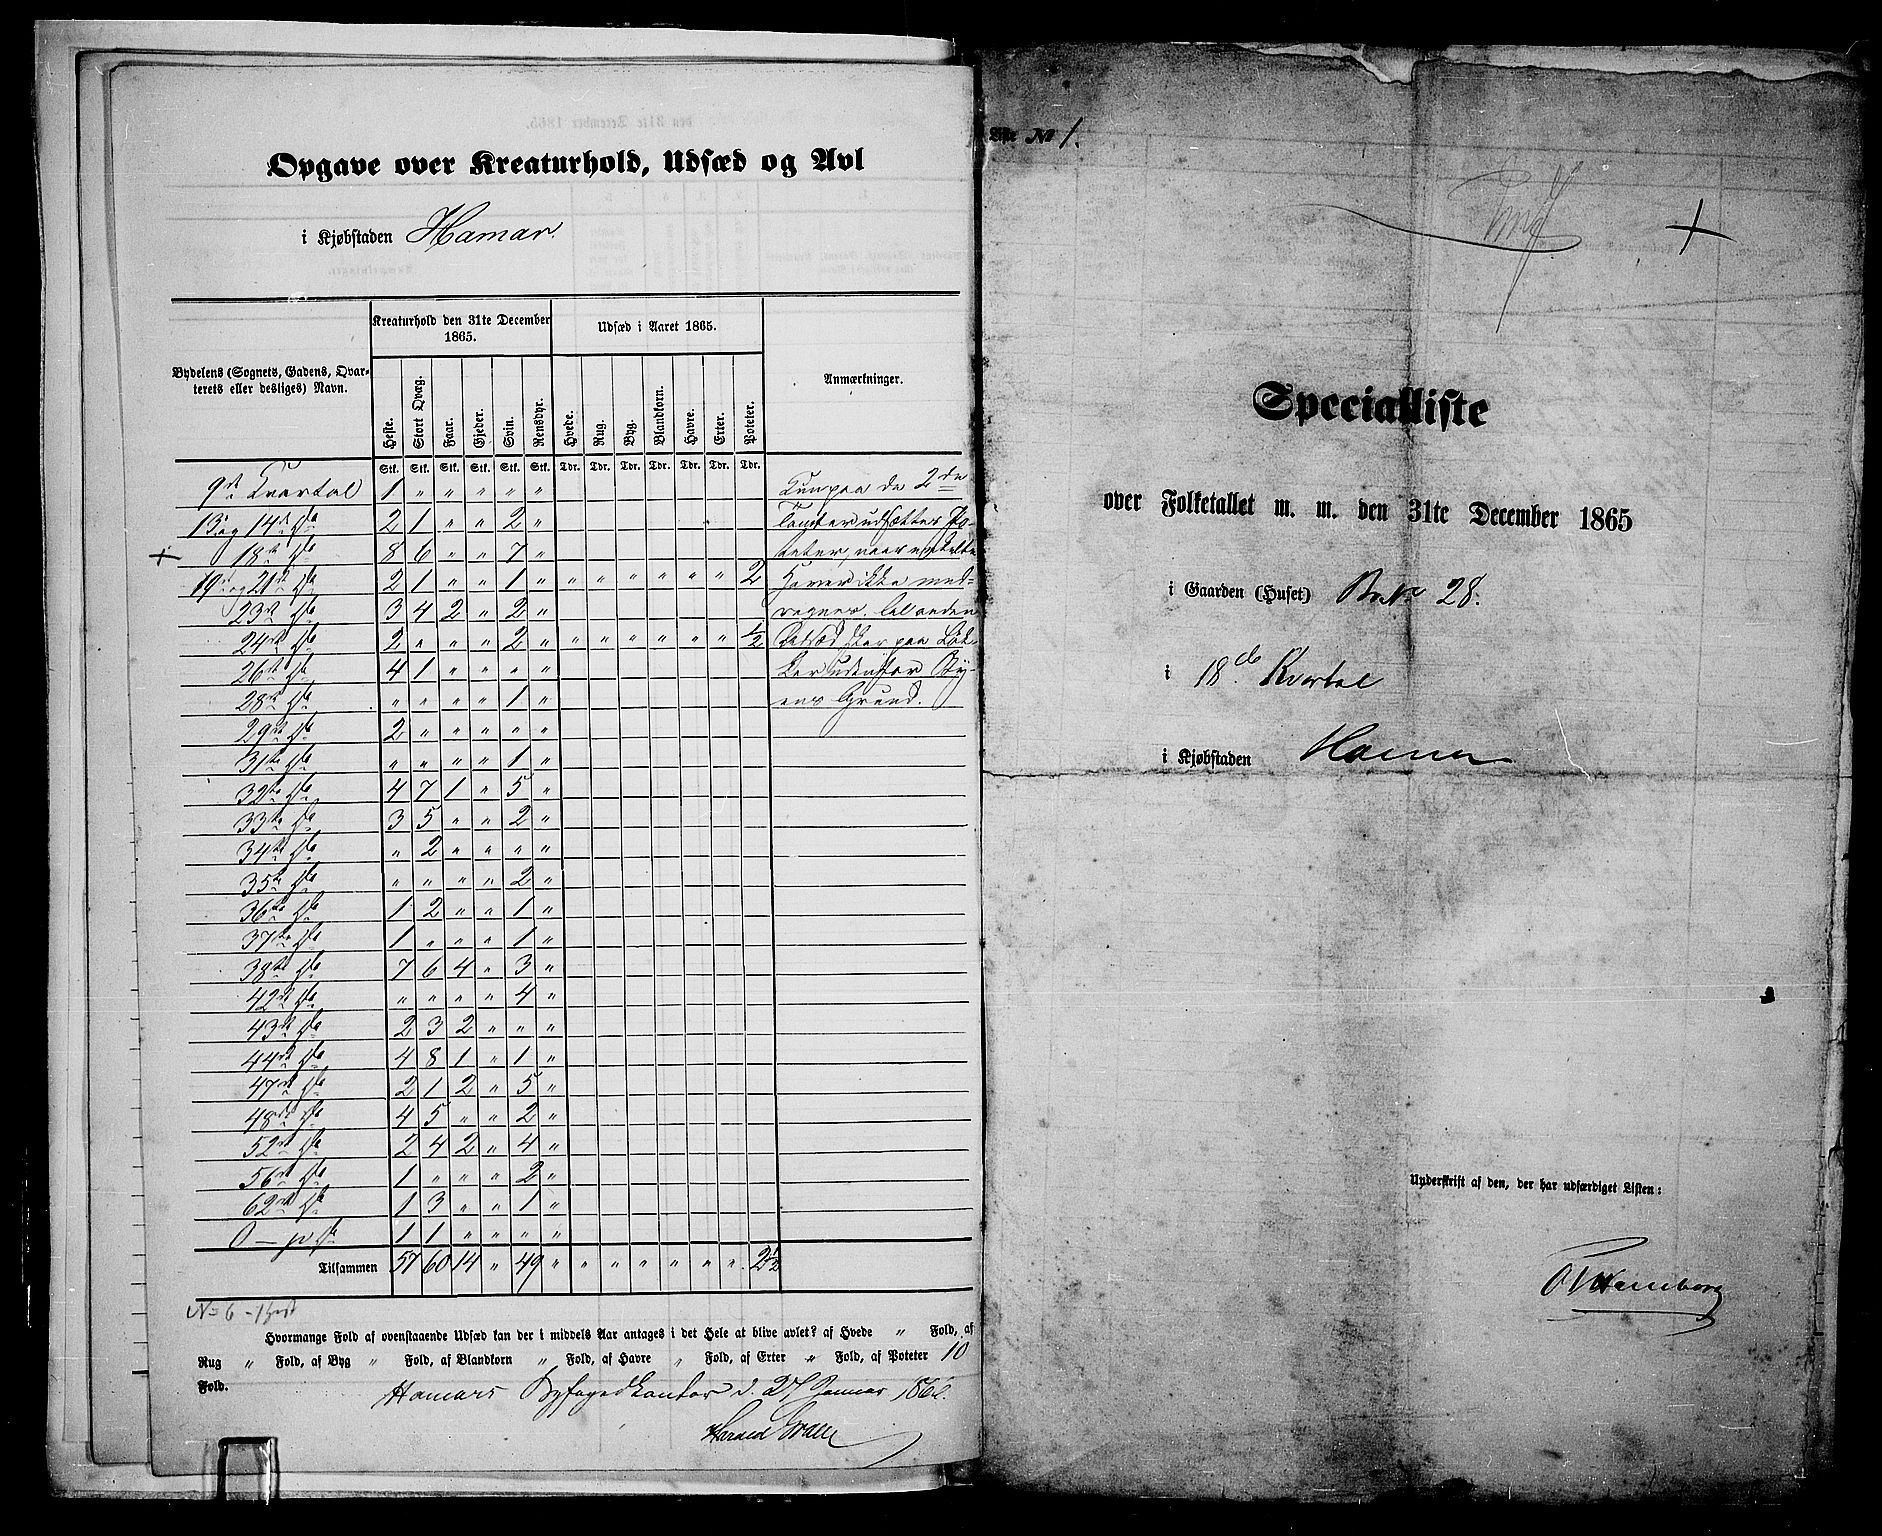 Opgave over Kreaturhold, Udsæd og Avl
i Kjøbstaden Hamar.
Bydelens (Sognets, Gadens, Qvar-
terets eller desliges) Navn.
Kreaturhold den 31te December
1865.
Udsæd i Aaret 1865.
Anmærkninger.
Heste. Stort Qvæg. Faar. Gjeder. Svin. Rensdyr. Hvede. Rug. Byg. Blandkorn. Havre. Erter. Poteter.
Stk. Stk. Stk. Stk. Stk. Stk. Tdr. Tdr. Tdr. Tdr. Tdr. Tdr. Tdr.
9de Kvartal 1 " " " " " Kun paa de 2de
13 og 14de do 2 1 " " 2 " Tomter udsættes Po-
+ 18de do 8 6 " " 7 " teter, naar enkelte
19 og 21de do 2 1 " " 1 " " " " " " " 2 Haver ikke med-
23de do 3 4 2 " 2 " regnes. Al anden
24de do 2 " " " 2 " " " " " " " 1/2 Udsæd sker paa Løk-
26de do 4 1 " " " " ker udenfor By-
28de do " " " " 1 " ens Grund.
29de do 2 " " " " "
31te do " " " " 1 "
32te do 4 7 1 " 5 "
33te do 3 5 " " 2 "
34te do " 2 " " " "
35te do " " " " 2 "
36te do 1 2 " " 1 "
37te do 1 " " " 1 "
38te do 7 6 4 " 3 "
42de do " " " " 4 "
43de do 2 3 2 " " "
44de do 4 8 1 " 1 "
47de do 2 1 2 " 5 "
48de do 4 5 " " 2 "
52de do 2 4 2 " 4 "
56de do 1 " " " 2 "
62de do 1 3 " " 1 "
O – p do 1 1 " " " "
Tilsammen 57 60 14 " 49 " " " " " " " 2 1/2
No 6 - 1 hest
Hvormange Fold af ovenstaaende Udsæd kan der i middels Aar antages i det Hele at blive avlet? af Hvede " Fold, af
Rug " Fold, af Byg " Fold, af Blandkorn " Fold, af Havre " Fold, af Erter " Fold, af Poteter 10
Fold.
Hamars Byfogedkontor d. 27 Januar 1866.
Harald
Liste No 1.
+
Specialliste
over Folketallet m. m. den 31te December 1865
i Gaarden (Huset) 28.
i 18de Kvartal
i Kjøbstaden Hamar
Underskrift af den, der har udfærdiget Listen: